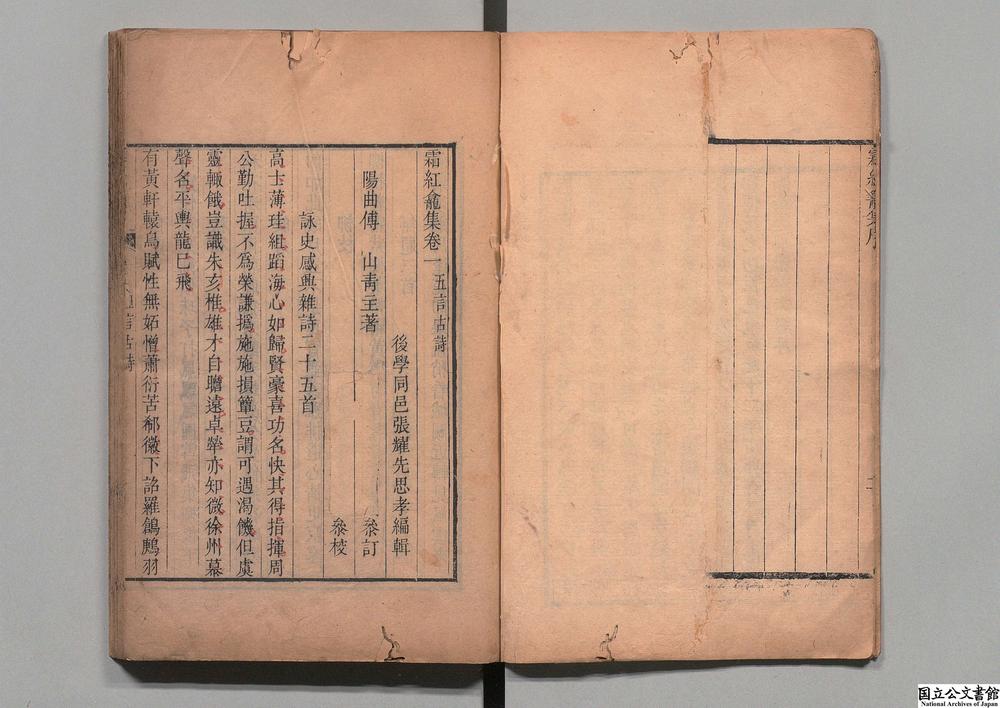 霜紅龕集序
霜紅龕集卷一 五言古詩
後學同邑張耀先思孝編輯
陽曲傅 山靑主著
叅訂
叅校
詠史感興雜詩二十五首
高士薄珪組蹈海心如歸賢豪喜功名快其得指揮周
公勤吐握不爲榮謙撝施施損簞豆謂可遇渴饑但虞
靈輒餓豈識朱亥椎雄才自瞻遠卓犖亦知微徐州慕
聲名平輿龍已飛
有黃軒轅鳥賦性無妬憎蕭衍苦郗徽下詔羅鶬鷓羽
五言古詩
国立公文書館
National Archives of Japan